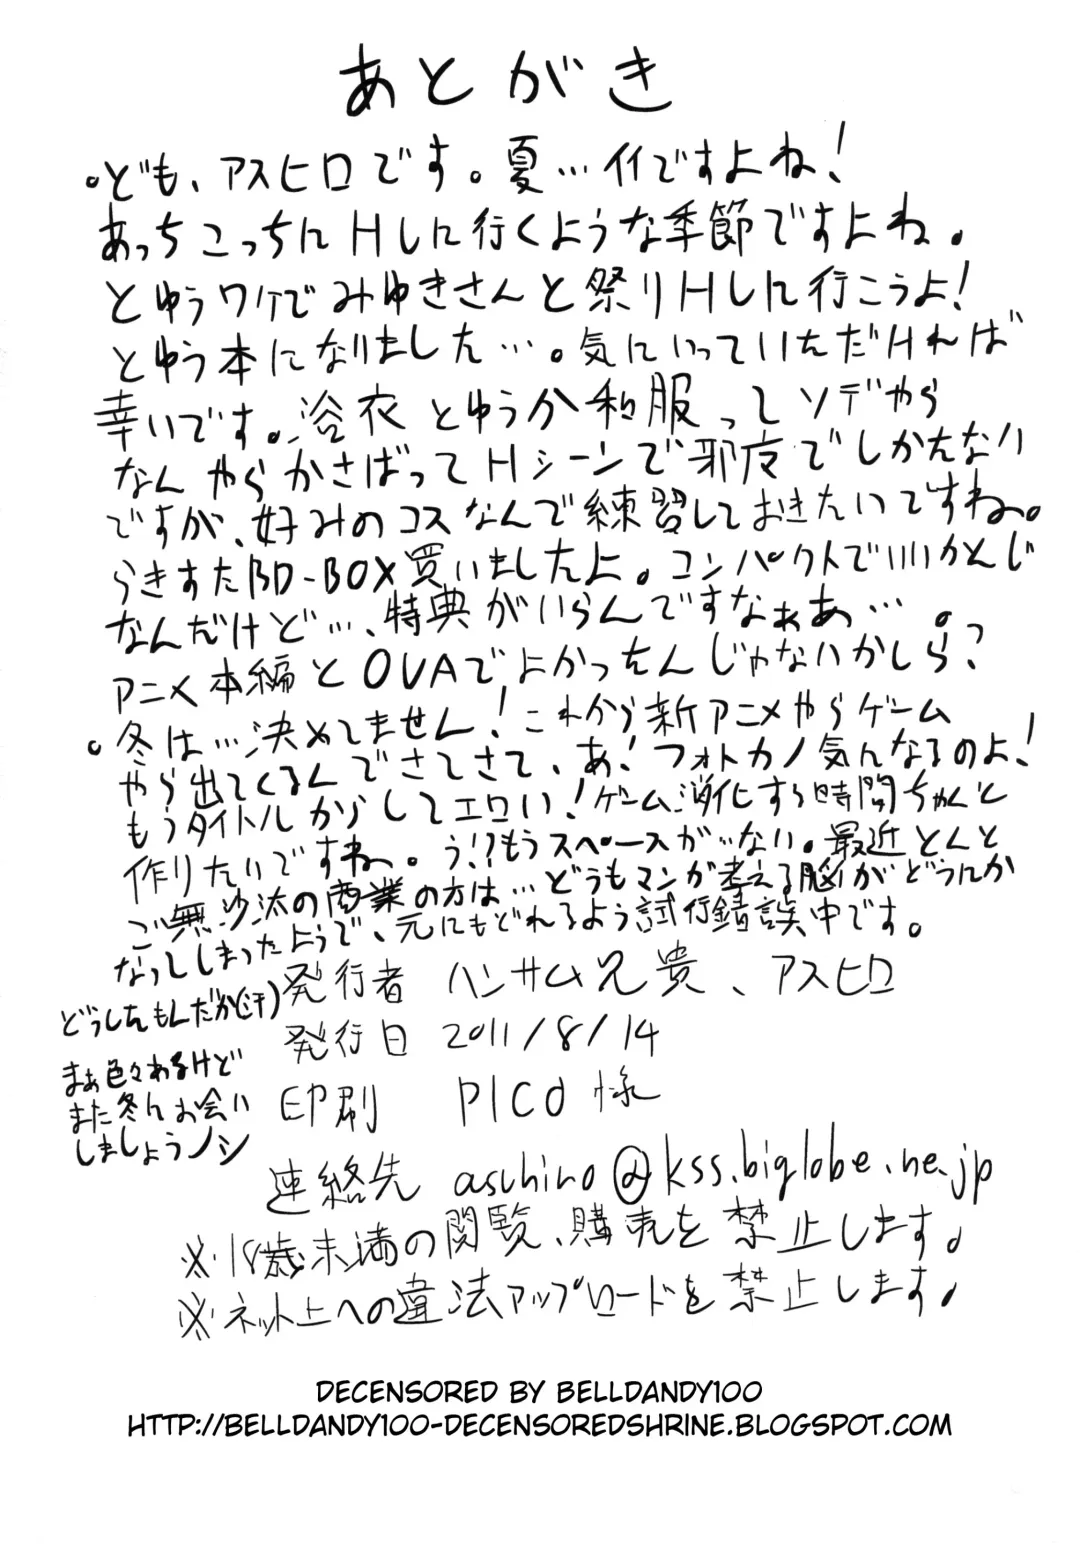 あとがき
。ども、アスヒロです。夏…イイですよね！
あっちこっちにHしに行くような季節ですよね。
とゆうワケでみゆきさんと祭りHしに行こうよ！
とゆう本になりました…。気にいっていただければ
幸いです。浴衣とゆうか和服ってソデやら
なんやらかさばってHシーンで邪魔でしかたない
ですが、好みのコスなんで練習しておきたいですね。
らきすたBD-BOX買いましたよ。コンパクトでいいかんじ
なんだけど…、特典がいらんですなぁあ…。
アニメ本編とOVAでよかったんじゃないかしら？
。冬は…決めてません！これから新アニメやらゲーム
やら出てくるんでさてさて、あ！フォトカノ気んなるのよ！
もうタイトルからしてエロい！ゲーム消化する時間ちゃんと
作りたいですね。う！？もうスペースがない。最近とんと
ご無沙汰の商業の方は…どうもマンガ考える脳がどうにか
なってしまったようで、元にもどれるよう試行錯誤中です。
どうしたもんだか(汗)
まぁ色々あるけど
また冬にお会い
しましょうノシ
発行者 ハンサム兄貴、アスヒロ
発行日 2011/8/14
印刷 PICO様
連絡先 asuhiro@kss.biglobe.ne.jp
※18歳未満の閲覧、購売を禁止します。
※ネット上への違法アップロードを禁止します。
DECENSORED BY BELLDANDY100
HTTP://BELLDANDY100-DECENSOREDSHRINE.BLOGSPOT.COM